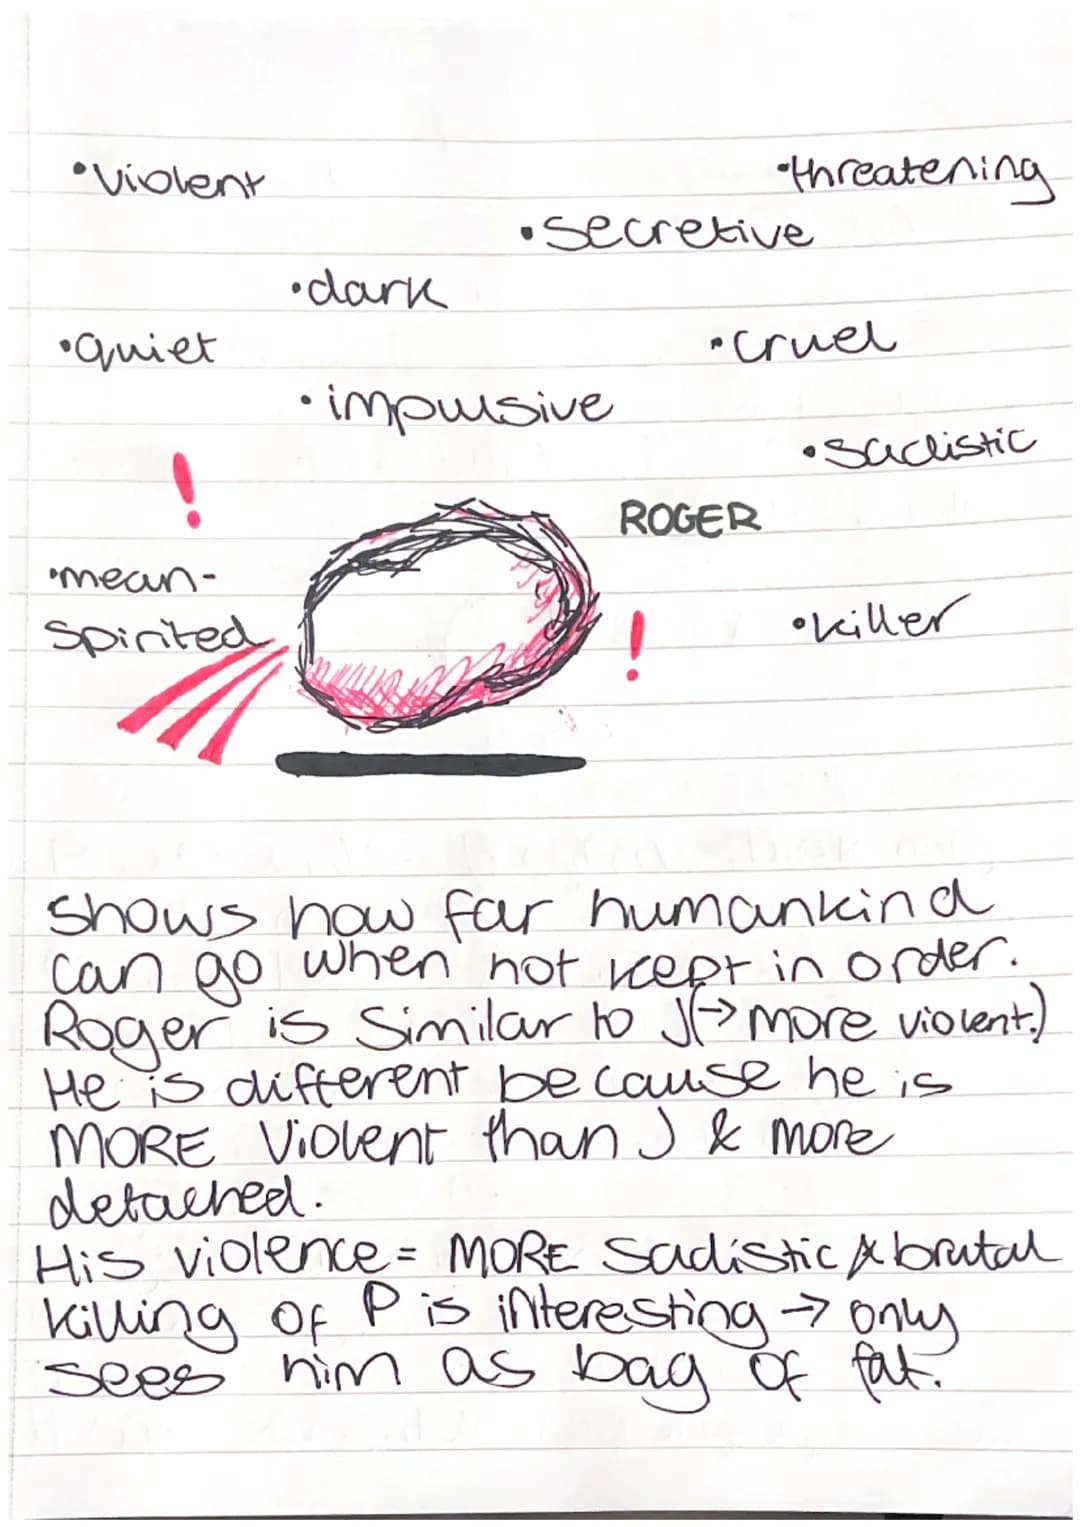 •violent
•threatening
•secretive
•dark
•quiet
•cruel
•impulsive
•sadistic
!
ROGER
•mean-
spirited
!
•killer
shows how far humankind
can go when not kept in order.
Roger is similar to J(→ more violent.)
He is different because he is
MORE violent than J & more
detached.
His violence = MORE sadistic & brutal
killing of P is interesting → only
sees him as bag of fat.